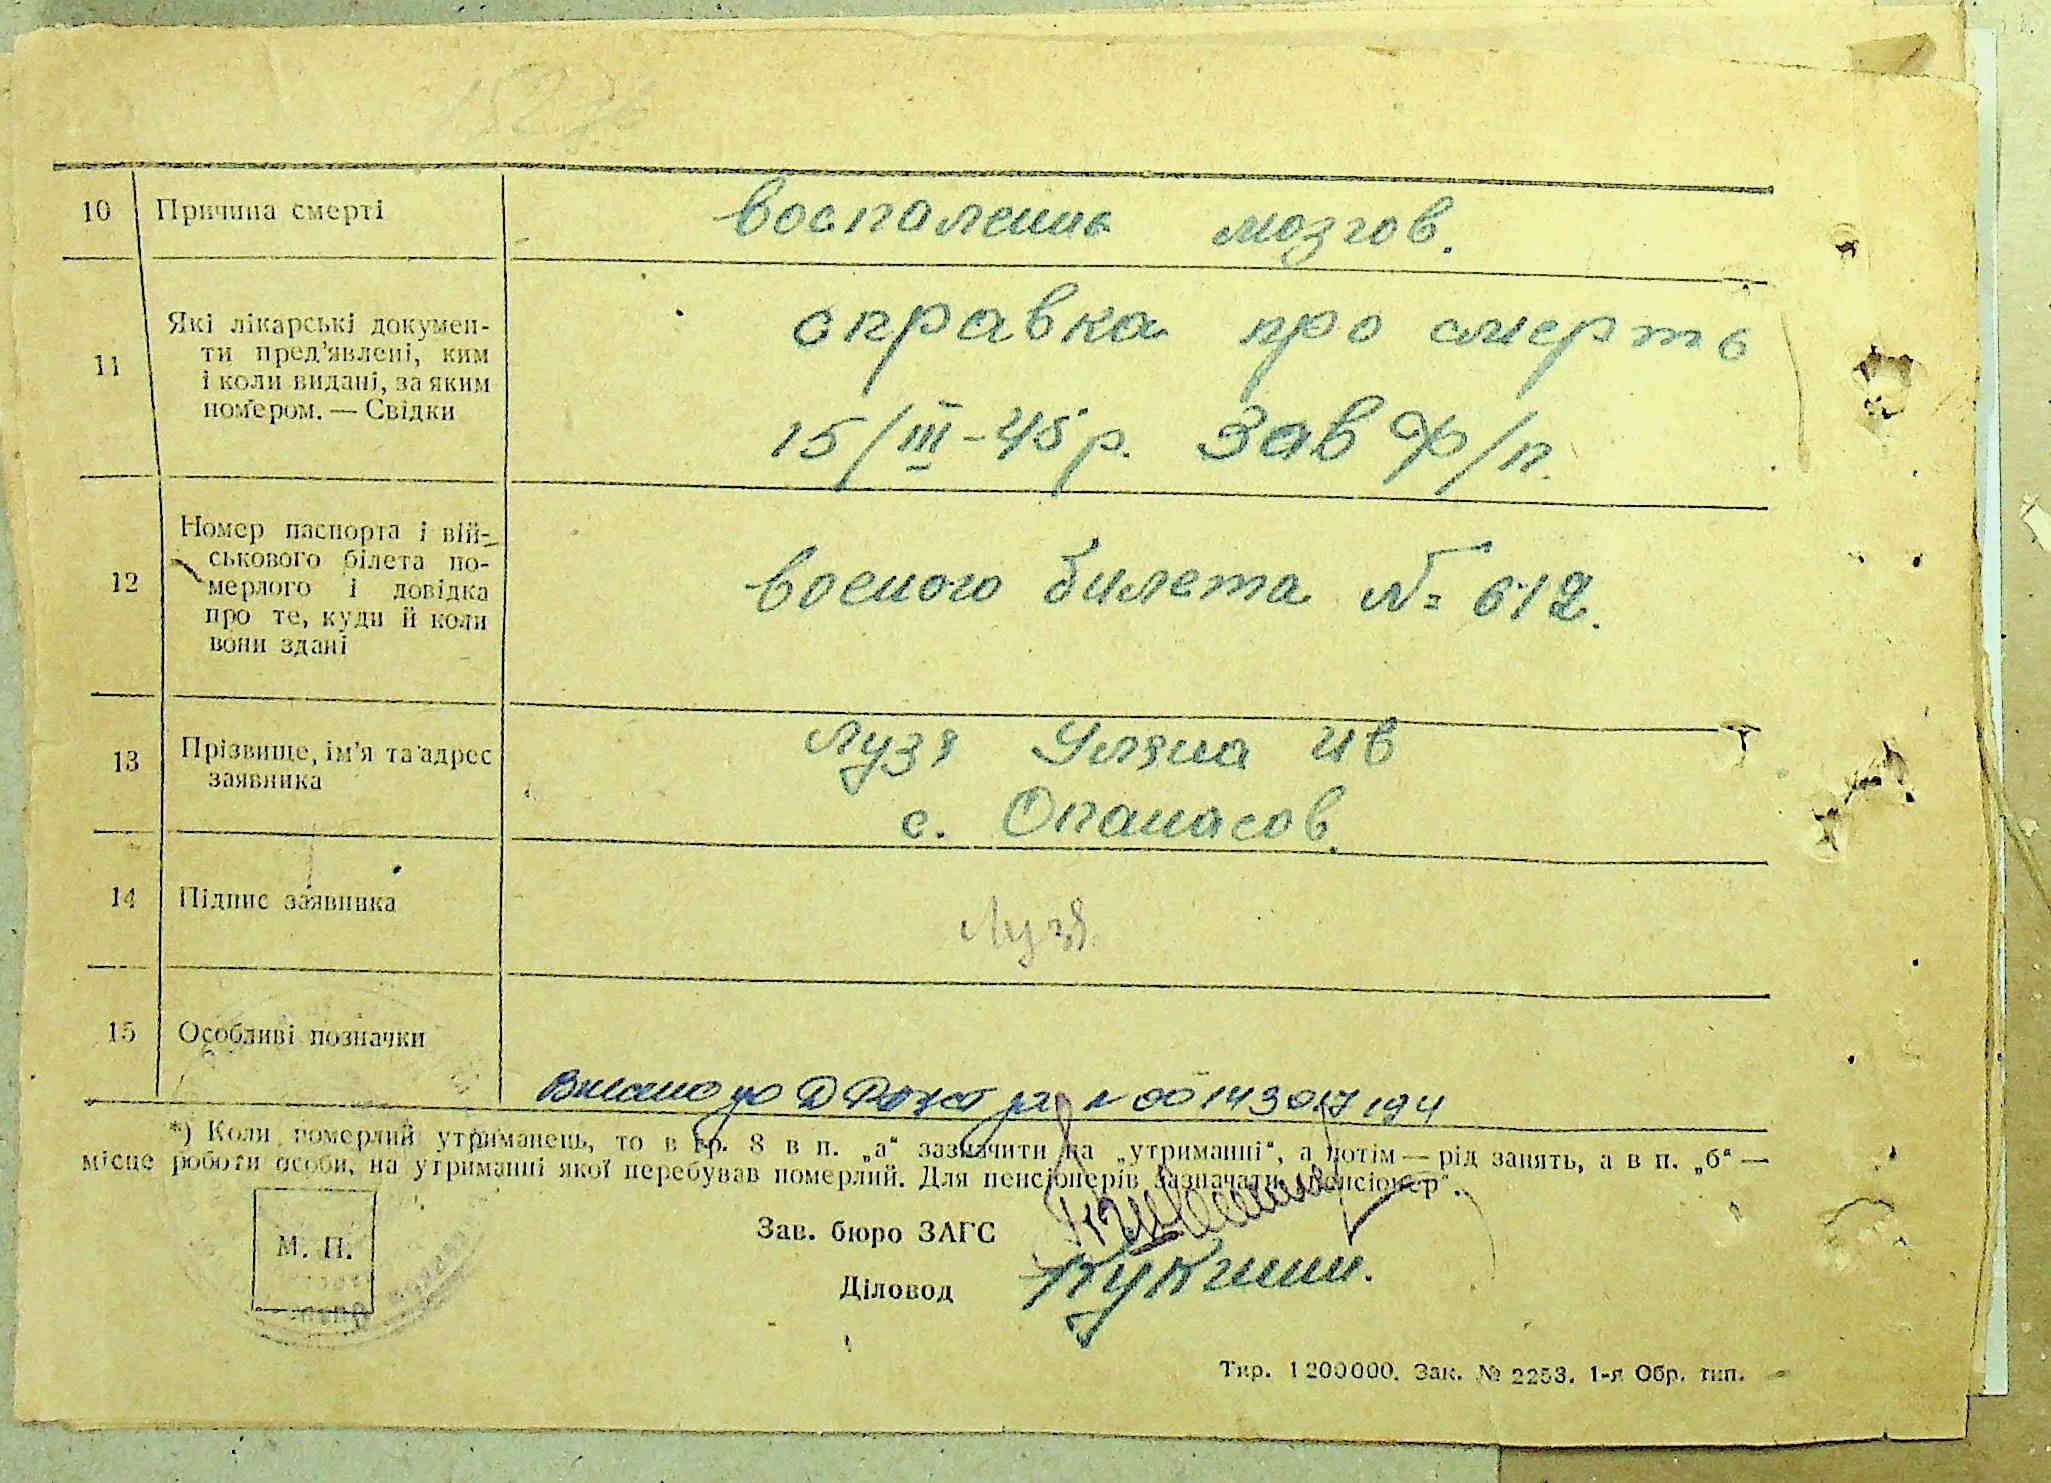 10 Причина смерті воспаление мозгов.
11 Які лікарські докумен-
ти пред'явлені, ким
і коли видані, за яким
номером. — Свідки
справка про смерть
15/III-45 р. Зав ф/п.
12 Номер паспорта і вій-
ськового білета по-
мерлого і довідка
про те, куди й коли
вони здані
военого билета №: 612.
13 Прізвище, ім'я та адрес
заявника
Лузя Уляна Ив
с. Опанасов.
14 Підпис заявника Лузя
15 Особливі позначки
*) Коли померлий утриманець, то в гр. 8 в п. „а“ зазначити на „утриманні“, а потім — рід занять, а в п. „б“ —
місце роботи особи, на утриманні якої перебував померлий. Для пенсіонерів зазначати „пенсіонер“.
М. П.
Зав. бюро ЗАГС
Діловод
Тир. 1200000. Зак. № 2253. 1-я Обр. тип.